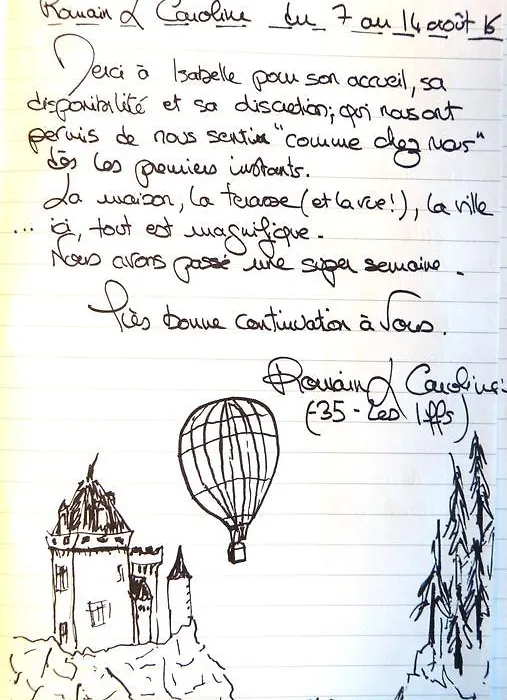 Romain & Caroline du 7 au 14 août 15
Merci à Isabelle pour son accueil, sa
disponibilité et sa discrétion; qui nous ont
permis de nous sentir "comme chez nous"
dès les premiers instants.
La maison, la terrasse (et la vue!), la ville
... ici, tout est magnifique.
Nous avons passé une super semaine.
Très bonne continuation à Vous.
Romain & Caroline.
(35 - Les Iffs)